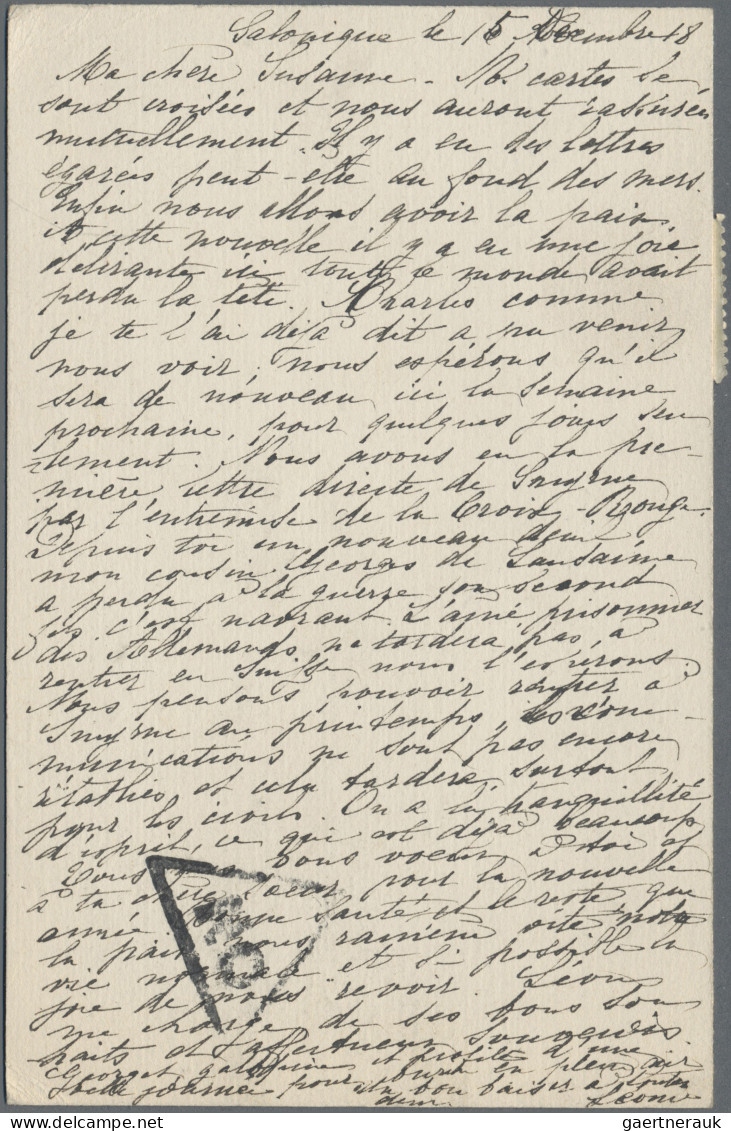 Salonique le 15 Décembre 18
Ma chère Susanne - Nos cartes se
sont croisées et nous auront rassurées
mutuellement. Il y a eu des lettres
égarées peut-être au fond des mers.
Enfin nous allons avoir la paix
à cette nouvelle il y a eu une joie
délirante ici tout le monde avait
perdu la tête. Charles comme
je te l'ai déjà dit a pu venir
nous voir, nous espérons qu'il
sera de nouveau ici la semaine
prochaine, pour quelques jours seu
lement. Nous avons eu la pre-
mière lettre directe de Smyrne
par l'entremise de la Croix-Rouge.
Depuis toi un nouveau deuil
mon cousin Georges de Lausanne
a perdu à la guerre son second
fils c'est navrant. L'aîné prisonnier
des Allemands ne tardera pas à
rentrer en Suisse nous l'espérons.
Nous pensons pouvoir rentrer à
Smyrne au printemps, les com-
munications ne sont pas encore
rétablies et cela tardera surtout
pour les civils. On a la tranquillité
d'esprit, ce qui est déjà beaucoup
Tous nos bons voeux à toi et
à ta chère soeur pour la nouvelle
année. Bonne santé et le reste que
la paix nous ramène vite notre
vie normale et si possible la
joie de nous revoir. Léon
me charge de ses bons sou
haits et affectueux souvenirs.
Georget galopine et profite d'une
belle journée pour courir en plein air
un bon baiser à toutes
deux. Léonie